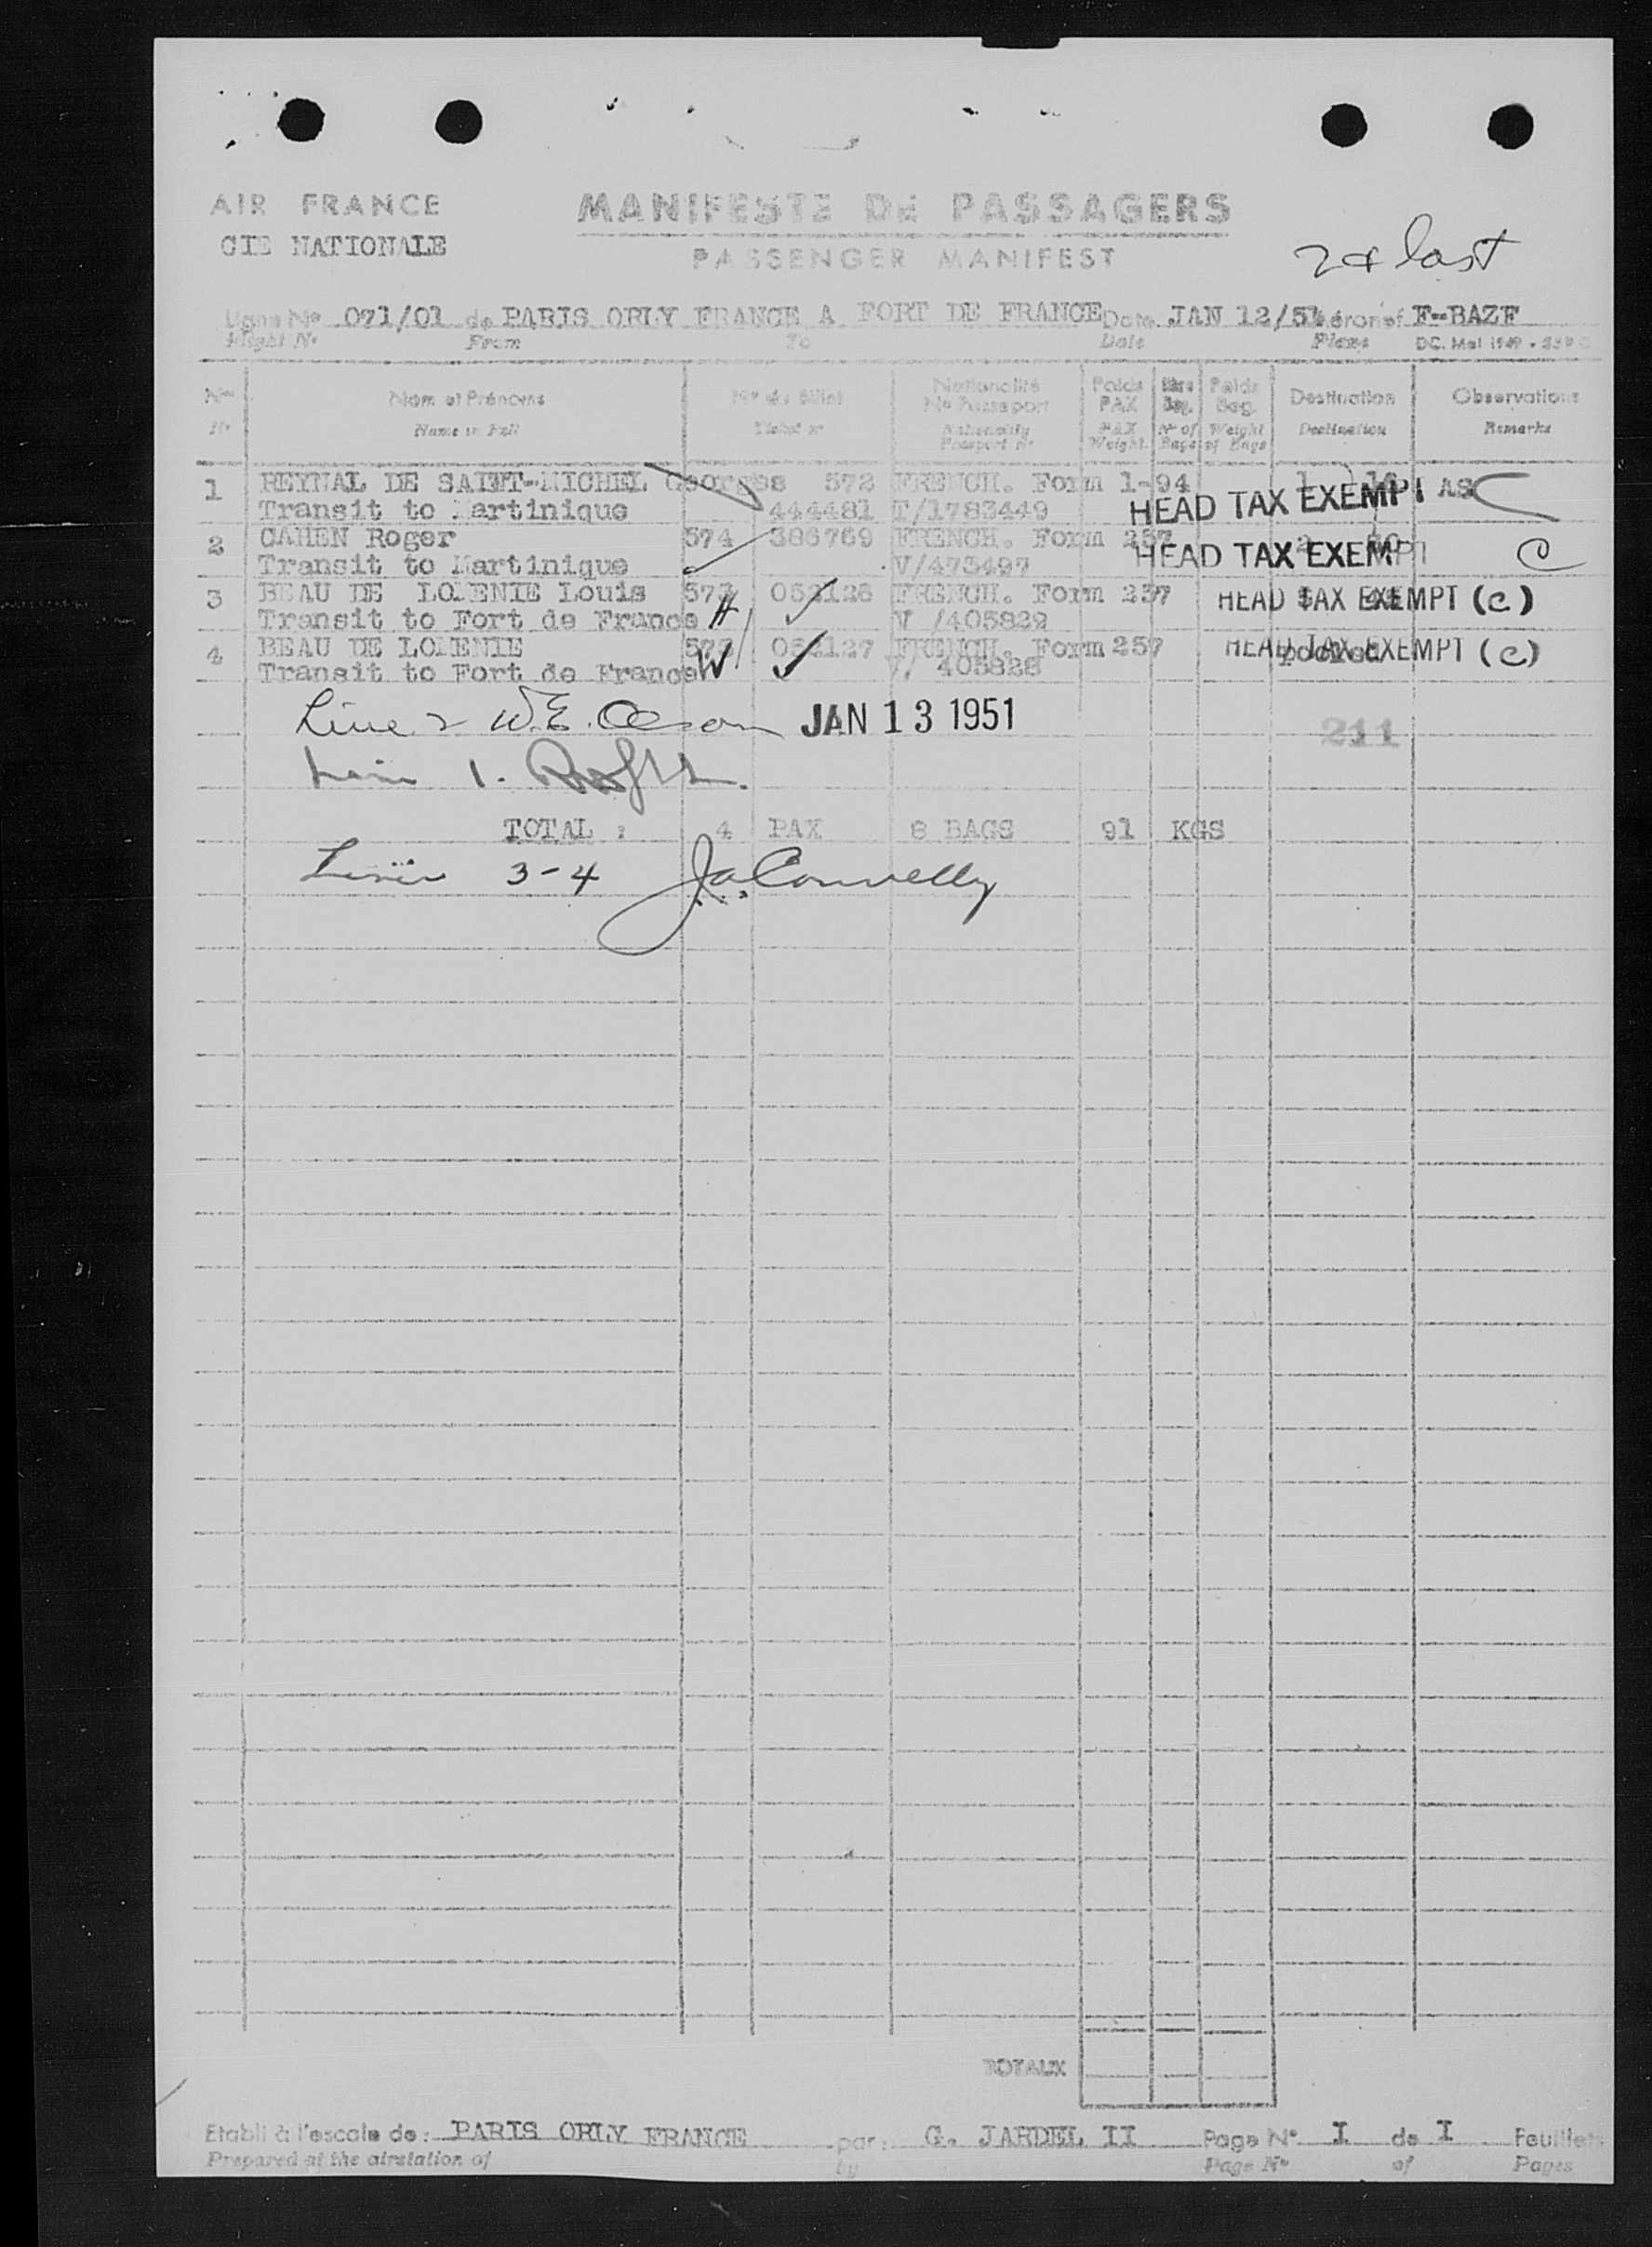 AIR FRANCE
CIE NATIONALE
MANIFESTE DE PASSAGERS
PASSENGER MANIFEST
2 & last
Ligne Nº 071/01 de PARIS ORLY FRANCE A FORT DE FRANCE Date JAN 12/51 Aéronef F-BAZF
Flight Nº From To Date Plane DC. Mai 1949
Nos Nom et Prénoms Nos du Billet Nationalité Nº Passeport Poids PAX Nbre Bag. Poids Bag. Destination Observations
Nº Name in Full Ticket nº Nationality Passport nº PAX Weight Nº of Bags Weight of Bags Destination Remarks
1 REYNAL DE SAINT-MICHEL Georges 572 FRENCH. Form 1-94
Transit to Martinique 444481 T/1783449 HEAD TAX EXEMPT AS C
2 CAHEN Roger 574 386769 FRENCH. Form 257
Transit to Martinique V/473497 HEAD TAX EXEMPT C
3 BEAU DE LOMENIE Louis 573 062126 FRENCH. Form 257 HEAD TAX EXEMPT (C)
Transit to Fort de France H V /405829
4 BEAU DE LOMENIE 573 062127 FRENCH. Form 257 HEAD TAX EXEMPT (C)
Transit to Fort de France W V/ 405828 pooled
Line 2 W.E. Olson JAN 13 1951 211
Line 1.
TOTAL : 4 PAX 8 BAGS 91 KGS
Lines 3-4 J.A. Connelly
TOTAUX
Etabli à l'escale de : PARIS ORLY FRANCE par : G. JARDEL II Page Nº I de I Feuillets
Prepared at the airstation of by Page Nº of Pages